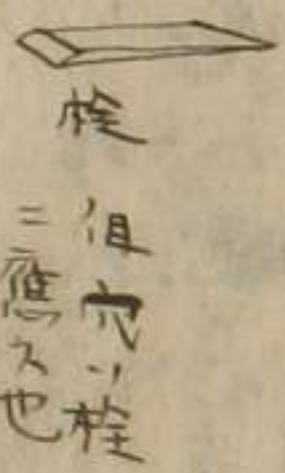 栓
但穴ハ栓
ニ應ス也